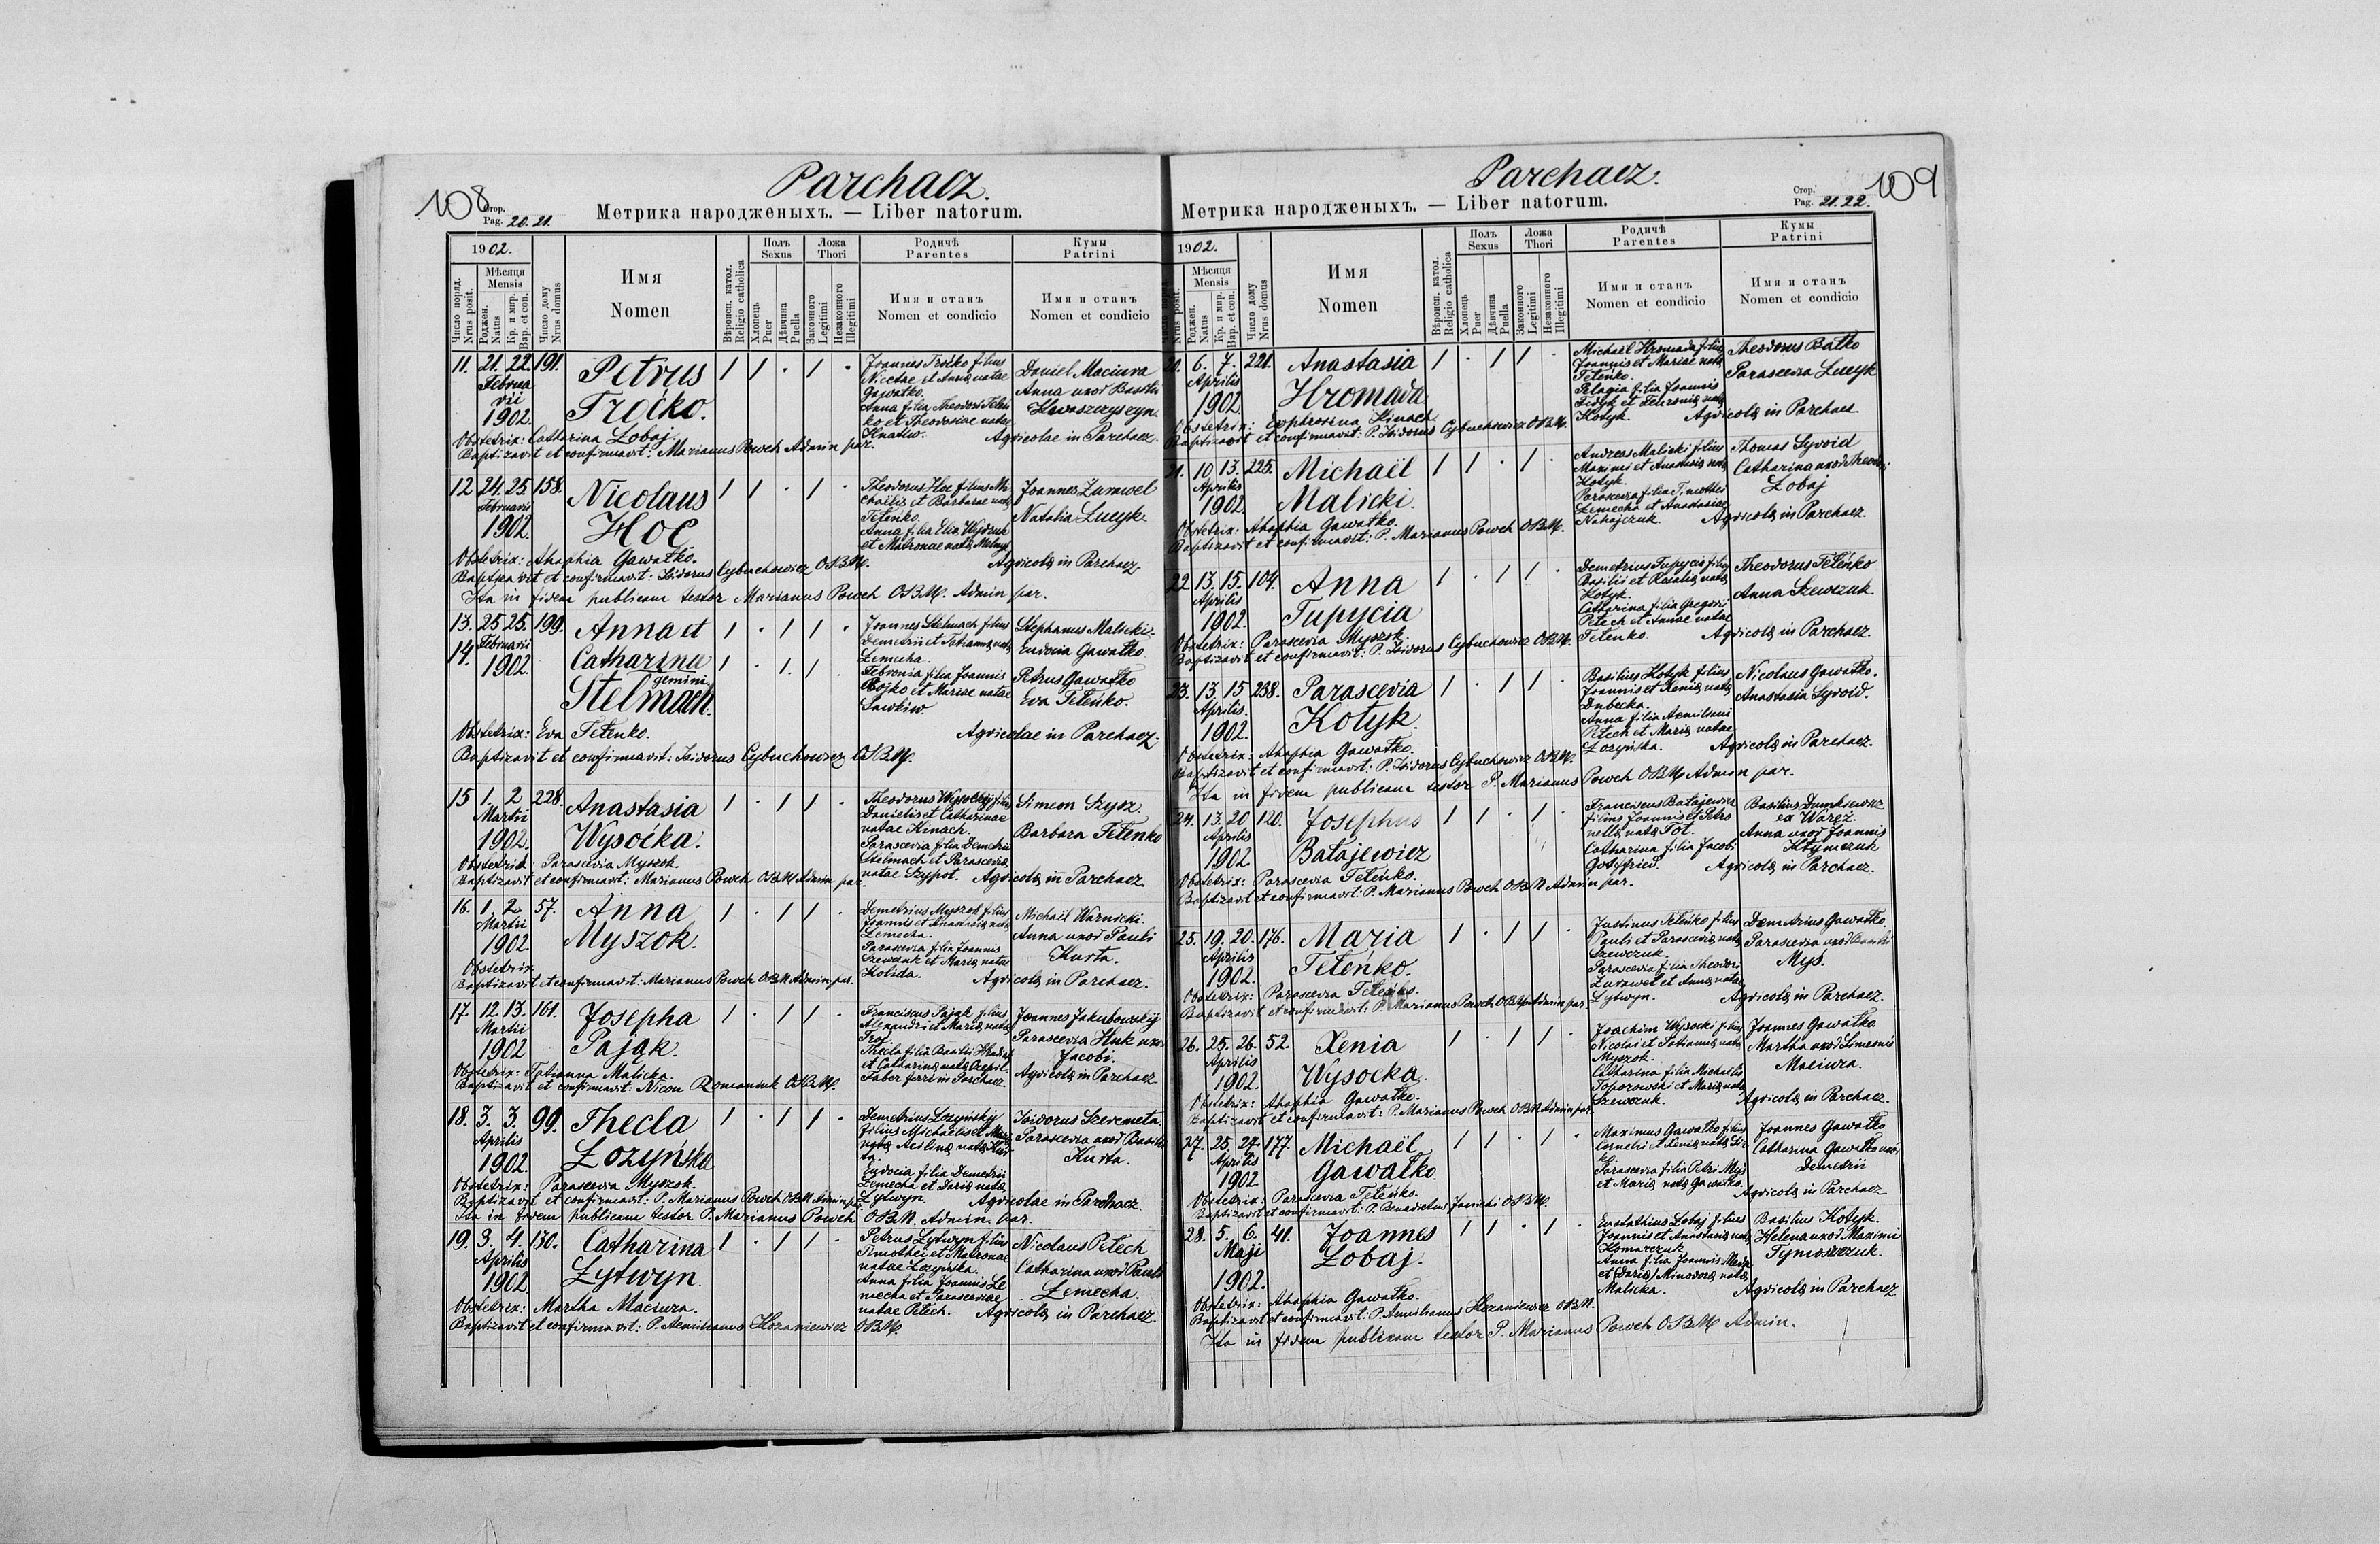 108
Parchacz.
Стор.
Pag. 20. 21.
Метрика народженыхъ. — Liber natorum.
1902.
Число поряд.
Nrus posit.
Мѣсяця
Mensis
Роджен.
Natus
Кр. и мир.
Bap. et con.
Число дому
Nrus domus
Имя
Nomen
Вѣроисп. катол.
Religio catholica
Полъ
Sexus
Хлопець
Puer
Дѣвчина
Puella
Ложа
Thori
Законного
Legitimi
Незаконного
Illegitimi
Родичѣ
Parentes
Имя и станъ
Nomen et condicio
Кумы
Patrini
Имя и станъ
Nomen et condicio
11. 21. 22. 191. Petrus Troćko. 1 1 . 1 .
Februa
rii
1902.
Joannes Troćko filius
Nicetae et Annae natae
Gawałko.
Anna filia Theodori Teteń
ko et Theodosiae natae
Hnatiw.
Daniel Maciura
Anna uxor Basilii
Harasczyszyn.
Agricolae in Parchacz.
Obstetrix: Catharina Łobaj.
Baptizavit et confirmavit: Marianus Powch Admin par.
12 24. 25. 158. Nicolaus Hoć 1 1 . 1 .
Februarii
1902.
Theodorus Hoc filius Mi
chaëlis et Barbarae natae
Teteńko.
Anna filia Eliae
et Matronae natae
Joannes Zurawel
Natalia Lucyk.
Agricolae in Parchacz
Obstetrix: Ahaphia Gawałko.
Baptizavit et confirmavit: Isidorus Cybuchowicz OSBM.
Ita in fidem publicam testor Marianus Powch OSBM. Admin par.
13. 25 25. 199. Anna et 1 . 1 1 .
14. Februarii
1902. Catharina 1 . 1. 1 .
gemini
Stelmach.
Joannes Stelmach filius
Demetrii et Tatiannae natae
Łemecha.
Febronia filia Joannis
Bojko et Mariae natae
Sawkiw.
Stephanus Malicki.
Eudocia Gawałko
Petrus Gawałko
Eva Teteńko.
Agricolae in Parchacz.
Obstetrix: Eva Tetenko.
Baptizavit et confirmavit: Isidorus Cybuchowicz OSBM.
15 1. 2 228. Anastasia Wysoćka. 1 . 1 1 .
Martii
1902.
Theodorus Wysockyj filius
Danielis et Catharinae
natae Kinach.
Parascevia filia Demetrii
Stelmach et Parasceviae
natae Szypot.
Simeon Szysz
Barbara Teteńko
Agricolae in Parchacz.
Obstetrix: Parascevia Myszok.
Baptizavit et confirmavit: Marianus Powch OSBM Admin par.
16. 1. 2 57. Anna Myszok. 1 . 1 1 .
Martii
1902.
Demetrius Myszok filius
Joannis et Anastasiae natae
Łemecha.
Parascevia filia Joannis
Szewczuk et Mariae natae
Kolida.
Michaël Warnicki.
Anna uxor Pauli
Kurta.
Agricolae in Parchacz.
Obstetrix
Baptizavit et confirmavit: Marianus Powch OSBM Admin par.
17. 12. 13. 161. Josepha Pająk. 1 . 1 1 .
Martii
1902
Franciscus Pająk filius
Alexandri et Mariae natae
Troj.
Thecla filia Basilii
et Catharinae natae
Faber ferri in Parchacz
Joannes Jakubowskyj
Parascevia Huk uxor
Jacobi.
Agricolae in Parchacz
Obstetrix: Tatianna Malicka.
Baptizavit et confirmavit: Nicon Romaniuk OSBM.
18. 3. 3. 99. Thecla Łozyńska 1 . 1 1 .
Aprilis
1902.
Demetrius Łozyńskyj
filius Michaelis et Mariae
natae natae Kur
ta.
Eudocia filia Demetrii
Łemecha et Dariae natae
Lytwyn.
Isidorus Szeremeta.
Parascevia uxor Basilii
Kurta.
Agricolae in Parchacz
Obstetrix: Parascevia Myszok.
Baptizavit et confirmavit: P. Marianus Powch OSBM. Admin par.
Ita in fidem publicam testor P. Marianus Powch OSBM. Admin. par.
19. 3. 4. 130. Catharina Łytwyn. 1 . 1 1 .
Aprilis
1902
Petrus Lytwyn filius
Timothei et Matronae
natae Łozyńska.
Anna filia Joannis Łe
mecha et Parasceviae
natae Petech.
Nicolaus Petech
Catharina uxor Pauli
Łemecha.
Agricolae in Parchacz.
Obstetrix: Martha Maciura.
Baptizavit et confirmavit: P. Aemilianus Hozaniewicz OSBM.
109
Parchacz.
Стор.
Pag. 21. 22.
Метрика народженыхъ. — Liber natorum.
1902.
Число поряд.
Nrus posit.
Мѣсяця
Mensis
Роджен.
Natus
Кр. и мир.
Bap. et con.
Число дому
Nrus domus
Имя
Nomen
Вѣроисп. катол.
Religio catholica
Полъ
Sexus
Хлопець
Puer
Дѣвчина
Puella
Ложа
Thori
Законного
Legitimi
Незаконного
Illegitimi
Родичѣ
Parentes
Имя и станъ
Nomen et condicio
Кумы
Patrini
Имя и станъ
Nomen et condicio
20. 6. 7. 221. Anastasia Hromada 1 . 1 1 .
Aprilis
1902
Michaël Hromada filius
Joannis et Mariae natae
Teteńko.
Pelagia filia Joannis
Fedyk et natae
Kotyk.
Theodorus Batko
Parascevia Lucyk
Agricolae in Parchacz
Obstetrix: Euphrosina Kinach
Baptizavit et confirmavit: P. Isidorus Cybuchowicz OSBM.
21. 10. 13. 225. Michaël Malicki. 1 1 . 1 .
Aprilis
1902.
Andreas Malicki filius
Maximi et Anastasiae natae
Kotyk.
Parascevia filia Timothei
Łemecha et Anastasiae
Nahajczuk.
Thomas Syroid
Catharina uxor Theodori
Łobaj
Agricolae in Parchacz.
Obstetrix: Ahaphia Gawałko.
Baptizavit et confirmavit: P. Marianus Powch OSBM.
22 13. 15. 104. Anna Tupycia 1 . 1 1 .
Aprilis
1902.
Demetrius Tupycia filius
Basilii et Rosaliae natae
Kotyk.
Catharina filia Gregorii
Petech et Annae natae
Tetenko.
Theodorus Teteńko
Anna Szewczuk.
Agricolae in Parchacz.
Obstetrix: Parascevia Myszok.
Baptizavit et confirmavit: P. Isidorus Cybuchowicz OSBM.
23. 13. 15 238. Parascevia Kotyk 1 . 1 1 .
Aprilis.
1902.
Basilius Kotyk filius
Joannis et Xeniae natae
Dubecka.
Anna filia Aemiliani
Petech et Mariae natae
Łozyńska.
Nicolaus Gawałko.
Anastasia Syroid.
Agricolae in Parchacz.
Obstetrix: Ahaphia Gawałko.
Baptizavit et confirmavit: P. Isidorus Cybuchowicz OSBM.
Ita in fidem publicam testor P. Marianus Powch OSBM Admin par.
24. 13. 20 120. Josephus Bałajewicz 1 1 . 1 .
Aprilis
1902
Franciscus Bałajewicz
filius Joannis et Petro
nellae natae Tot.
Catharina filia Jacobi
Gottfried.
Basilius Dumkiewicz
ex Waręż.
Anna uxor Joannis
Kłymczuk
Agricolae in Parchacz.
Obstetrix: Parascevia Teteńko.
Baptizavit et confirmavit: P. Marianus Powch OSBM Admin par.
25. 19. 20. 176. Maria Teteńko. 1 . 1 1 .
Aprilis
1902.
Justinus Teteńko filius
Pauli et Parasceviae natae
Szewczuk.
Parascevia filia Theodori
Zurawel et Annae natae
Lytwyn.
Demetrius Gawałko
Parascevia uxor Basilii
Mys.
Agricolae in Parchacz.
Obstetrix: Parascevia Teteńko.
Baptizavit et confirmavit: P. Marianus Powch OSBM Admin par.
26. 25. 26. 52. Xenia Wysocka. 1 . 1 1 .
Aprilis
1902.
Joachim Wysocki filius
Nicolai et Tatiannae natae
Myszok.
Catharina filia Michaëlis
Toporowski et Mariae natae
Szewczuk.
Joannes Gawałko
Martha uxor Simeonis
Maciura.
Agricolae in Parchacz.
Obstetrix: Ahaphia Gawałko.
Baptizavit et confirmavit: P. Marianus Powch OSBM Admin par.
27. 25. 27. 177. Michaël Gawałko. 1 1 . 1 .
Aprilis
1902
Maximus Gawałko filius
Cornelii et Xeniae natae
Parascevia filia Petri Mys
et Mariae natae Gawałko.
Joannes Gawałko
Catharina Gawałko uxor
Demetrii
Agricolae in Parchacz
Obstetrix: Parascevia Teteńko.
Baptizavit et confirmavit: P. Benedictus Janicki OSBM.
28. 5. 6. 41. Joannes Łobaj. 1 1 . 1 .
Maji
1902.
Eustathius Łobaj filius
Joannis et Anastasiae natae
Komarczuk
Anna filia Joannis
et (Dariae) Minodorae natae
Malicka.
Basilius Kotyk.
Helena uxor Maximi
Tymoszczuk.
Agricolae in Parchacz
Obstetrix: Ahaphia Gawałko.
Baptizavit et confirmavit: P. Aemilianus Hozaniewicz OSBM.
Ita in fidem publicam testor P. Marianus Powch OSBM Admin.